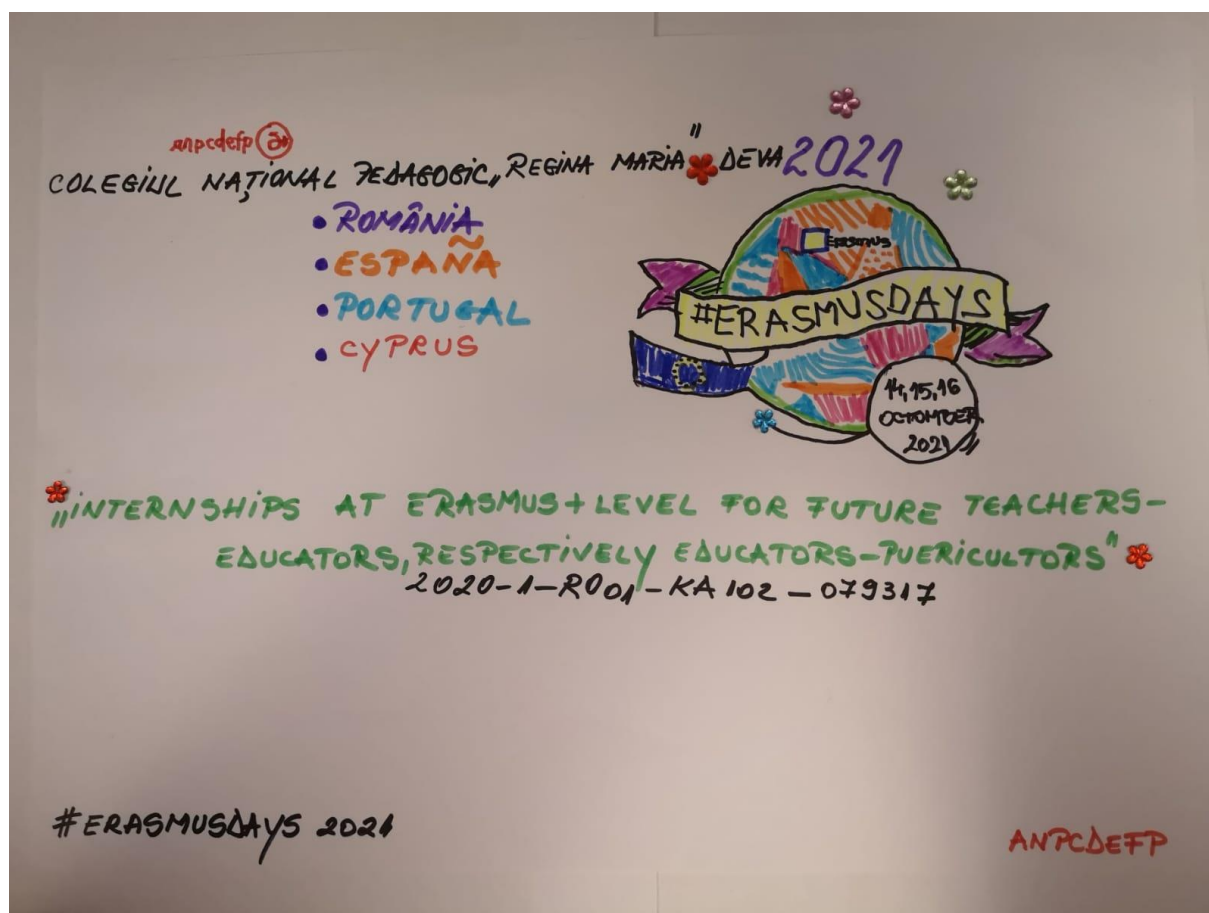 anpcdefp
COLEGIUL NAȚIONAL PEDAGOGIC „REGINA MARIA" DEVA 2021
• ROMÂNIA
• ESPAÑA
• PORTUGAL
• CYPRUS
ERASMUS
#ERASMUSDAYS
14, 15, 16
OCTOMBER
2021
„INTERNSHIPS AT ERASMUS+ LEVEL FOR FUTURE TEACHERS-
EDUCATORS, RESPECTIVELY EDUCATORS-PUERICULTORS"
2020-1-RO01-KA102-079317
#ERASMUSDAYS 2021
ANPCDEFP